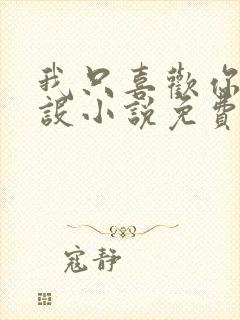 我只喜歡你
設小說免費
寇靜